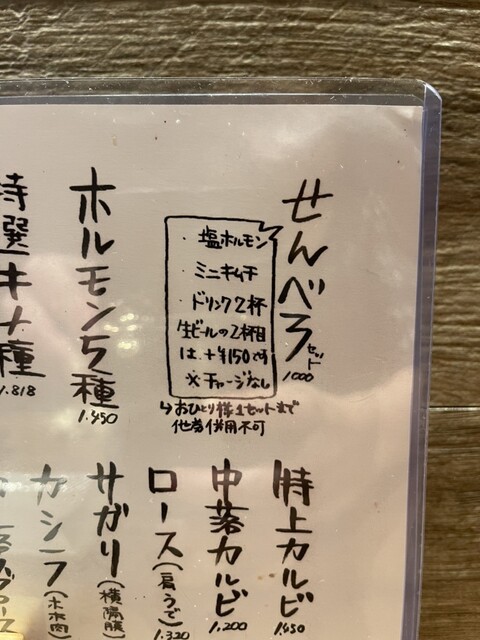 せんべろセット
1000
・塩ホルモン
・ミニキムチ
・ドリンク2杯
生ビールの2杯目
は、+¥150です
※チャージなし
↳おひとり様1セットまで
他券併用不可
ホルモン5種
1.450
特選
種
1.818
特上カルビ
1.450
中落カルビ
1,200
ロース(肩うで)
1.320
サガリ(横隔膜)
カシラ(ホホ肉)